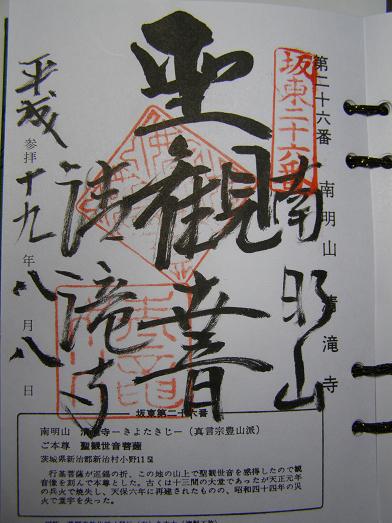 第二十六番 南明山 清滝寺
坂東二十六番
南明山
聖観音
清滝寺
平成十九年八月八日
参拝
坂東第二十六番
南明山 清滝寺―きよたきじ―(真言宗豊山派)
ご本尊 聖観世音菩薩
茨城県新治郡新治村小野11
行基菩薩が巡錫の折、この地の山上で聖観世音を感得したので観
音像を刻んで本尊とした。古くは十三間の大堂であったが天正元年
の兵火で焼失し、天保六年に再建されたものの、昭和四十四年の災
火で堂宇を失った。